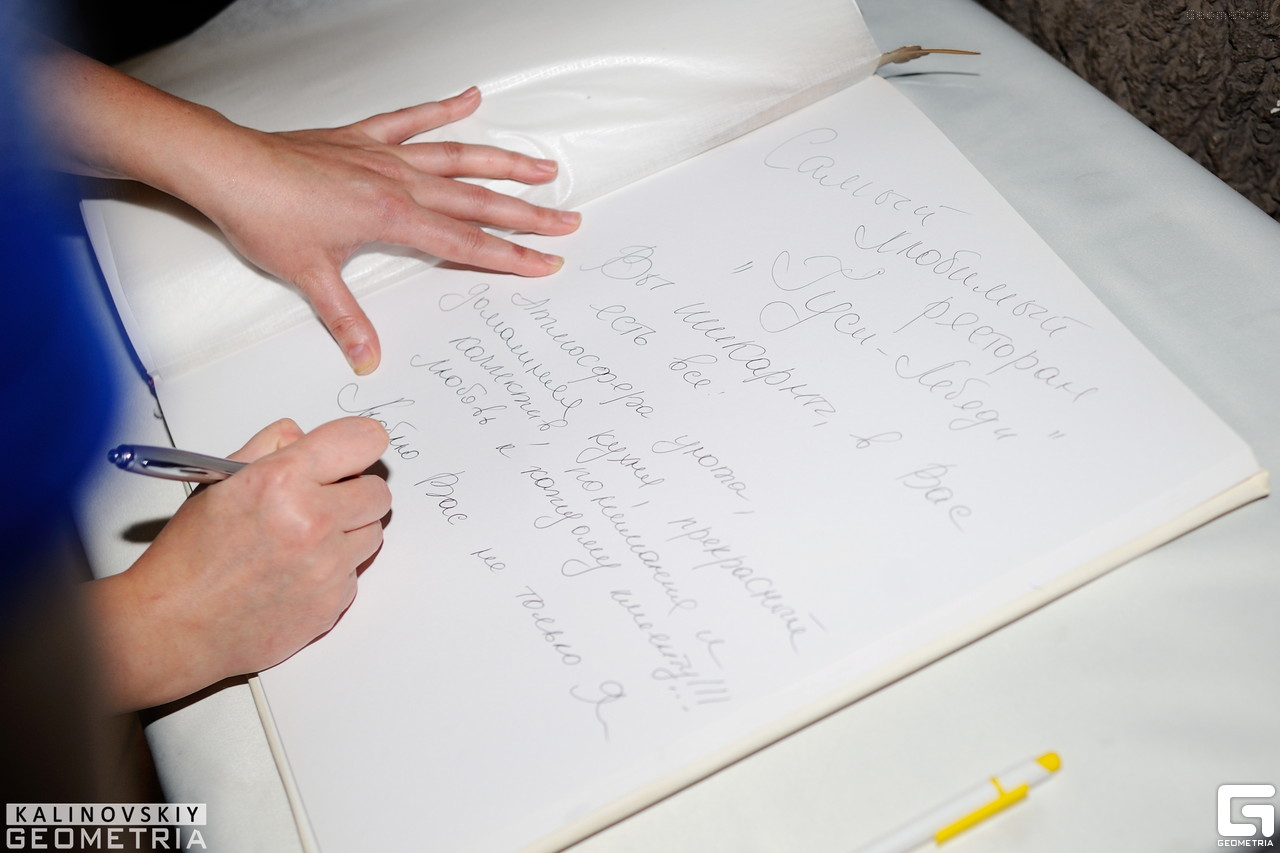 Самый любимый
ресторан
"Гуси-Лебеди"
Вы шикарны, в Вас
есть все!
Атмосфера уюта,
домашняя кухня, прекрасный
коллектив, понимание и
любовь к каждому клиенту!!!
Люблю Вас не только Я
KALINOVSKIY
GEOMETRIA
GEOMETRIA
Geometria